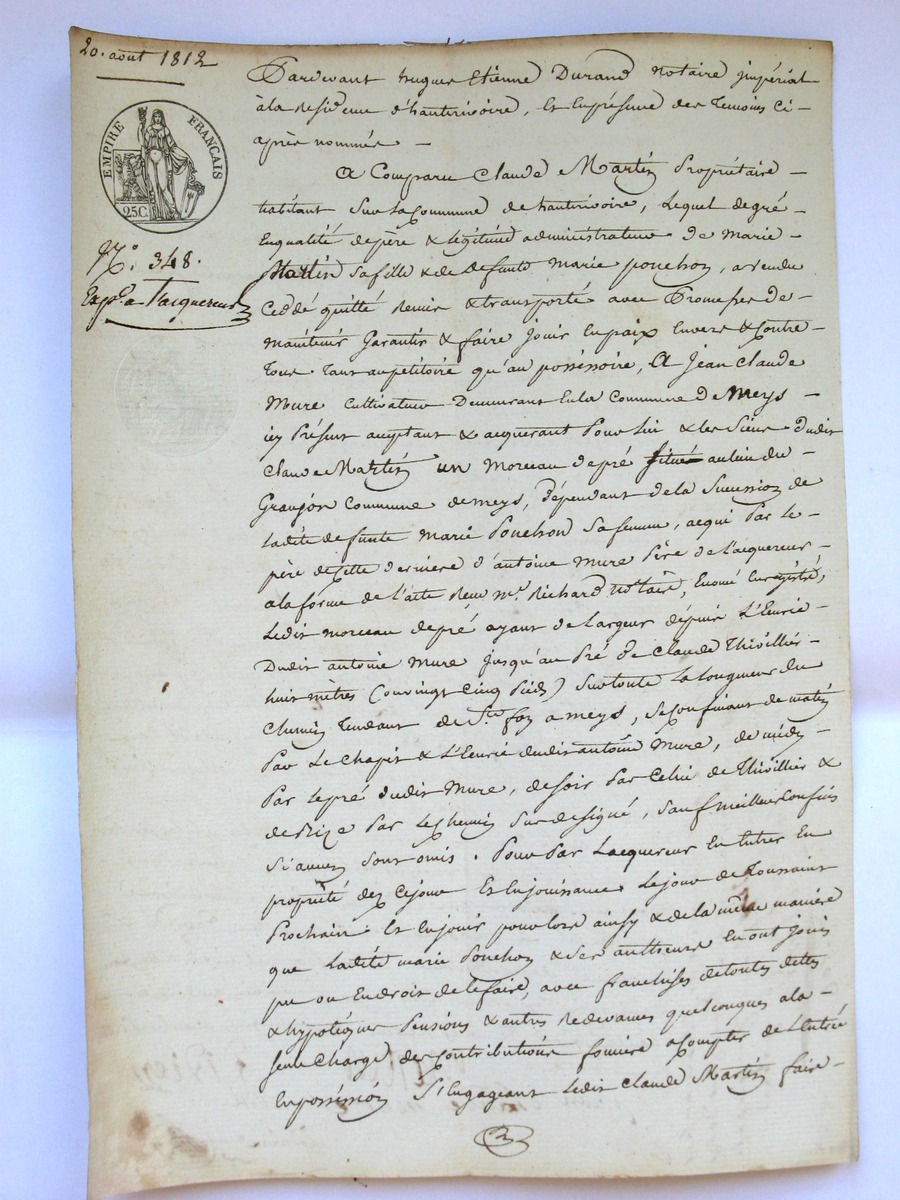 20. août 1812
EMPIRE FRANÇAIS
25C.
N.º 348.
Exp.º a l'acquereur
Pardevant hugues Etienne Durand notaire jmpérial
à la Residence d'hauterivoire, Et En présence des Temoins Ci-
après nommés -
A Comparu Claude Martin Propriétaire -
habitant Sur la Commune de hauterivoire, Lequel de gré -
En qualité de père & légitime administrateur de Marie -
Martin Sa fille & de defunte marie ponchon, a vendu
Ceddé quitté Remis & transporté avec Promesses de -
maintenir Garantir & faire jouir En paix Envers & Contre -
Tous Tant au petitoire qu'au possessoire, A Jean Claude
Mure Cultivateur Demeurant En la Commune de Meys -
icy Présent acceptant & acquerant Pour lui & les Siens dudit
Claude Martin un Morceau de pré situé au lieu du -
Granjon Commune de meys, dépendant de la Succession de
Ladite defunte Marie Ponchon Sa femme, acqui Par le -
père de Cette derniere d'antoine Mure Père de l'acquereur -
a la forme de l'acte Reçu Mᵉ Richard Notaire, Enoncé Enregistré,
Ledit morceau de pré ayant de Largeur depuis L'Ecurie -
Dudit antoine Mure jusqu'au Pré de Claude Thivillier -
huit mètres (ou vingt cinq Pieds) Sur toute La longueur du
Chemin Tendant de Ste foy a meys, Se Confinant de matin
Par Le Chapit & L'Ecurie dudit antoine Mure, de midy -
Par le pré dudit Mure, de soir Par Celui de Thivillier &
de Bize Par Le Chemin Sus designé, Sauf meilleurs Confins
Si aucuns Sont omis. Pour Par L'acquereur En Entrer En
propriété dez Ce jour Et En jouissance Le jour de Toussaint
Prochain. Et En jouir pour lors ainsy & de la même manière
que Ladite marie Ponchon & Ses autheurs En ont joui
pu ou En droit de le faire, avec franchises de toutes dettes
& hypotèques Pensions & autres Redevances quelconques a la -
seule Charge des Contributions fonciere a Compter de L'entrée
En possession S'Engageant Ledit Claude Martin faire -